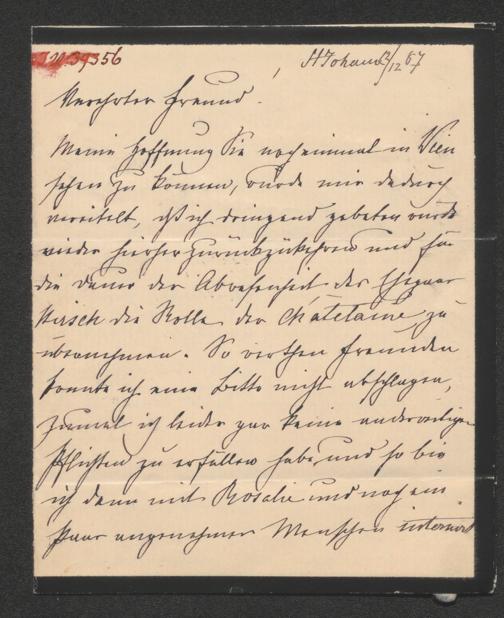 I.N. 39356
St Johann 3/12 67
Verehrter Freund!
Meine Hoffnung Sie noch einmal in Wien
sehen zu können, wurde mir dadurch
vereitelt, daß ich dringend gebeten wurde
wieder hierher zurückzukehren und für
die Dauer der Abwesenheit des Ehepaar
Hirsch die Rolle der Châtelaine zu
übernehmen. So werthen Freunden
konnte ich eine Bitte nicht abschlagen,
zumal ich leider gar keine anderweitigen
Pflichten zu erfüllen habe, und so bin
ich denn mit Rosalie und noch ein
Paar angenehmen Menschen internirt